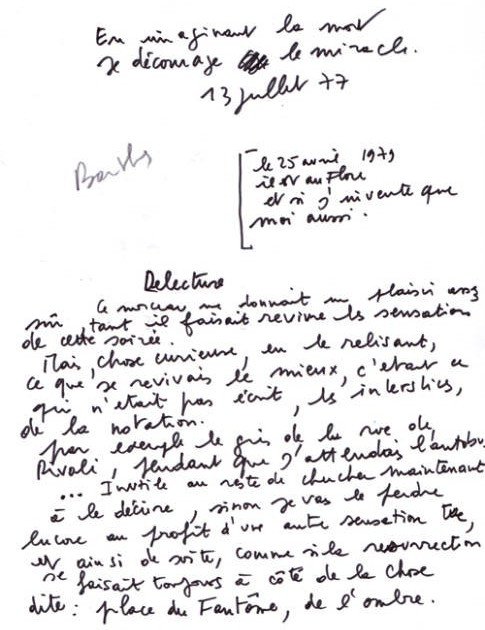 En imaginant la mort
je décourage le miracle.
13 juillet 77
Barthes
le 25 avril 1979
il est au Flore
et si j'invente que
moi aussi.
Delecture
Ce morceau me donnait un plaisir assez
sûr tant il faisait revivre les sensations
de cette soirée.
Mais, chose curieuse, en le relisant,
ce que je revivais le mieux, c'était ce
qui n'était pas écrit, les interstices,
de la notation.
par exemple le gris de la rue de
Rivoli, pendant que j'attendais l'autobus
... Inutile au reste de chercher maintenant
à le décrire, sinon je vas le perdre
encore au profit d'une autre sensation tue,
et ainsi de suite, comme si la résurrection
se faisait toujours à côté de la chose
dite : place du Fantôme, de l'ombre.